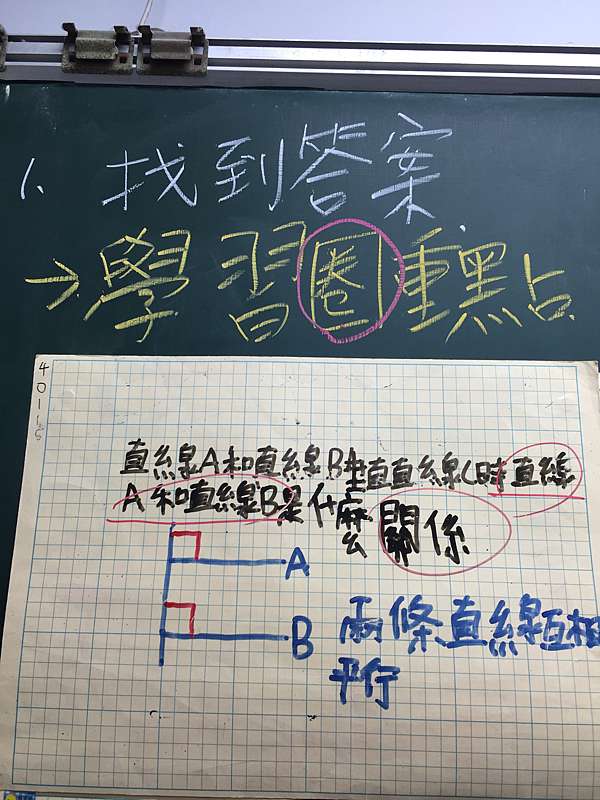 1. 找到答案
→學習圈重點
40115
直線A和直線B垂直直線C時直線
A和直線B是什麼關係
A
B
兩條直線互相
平行